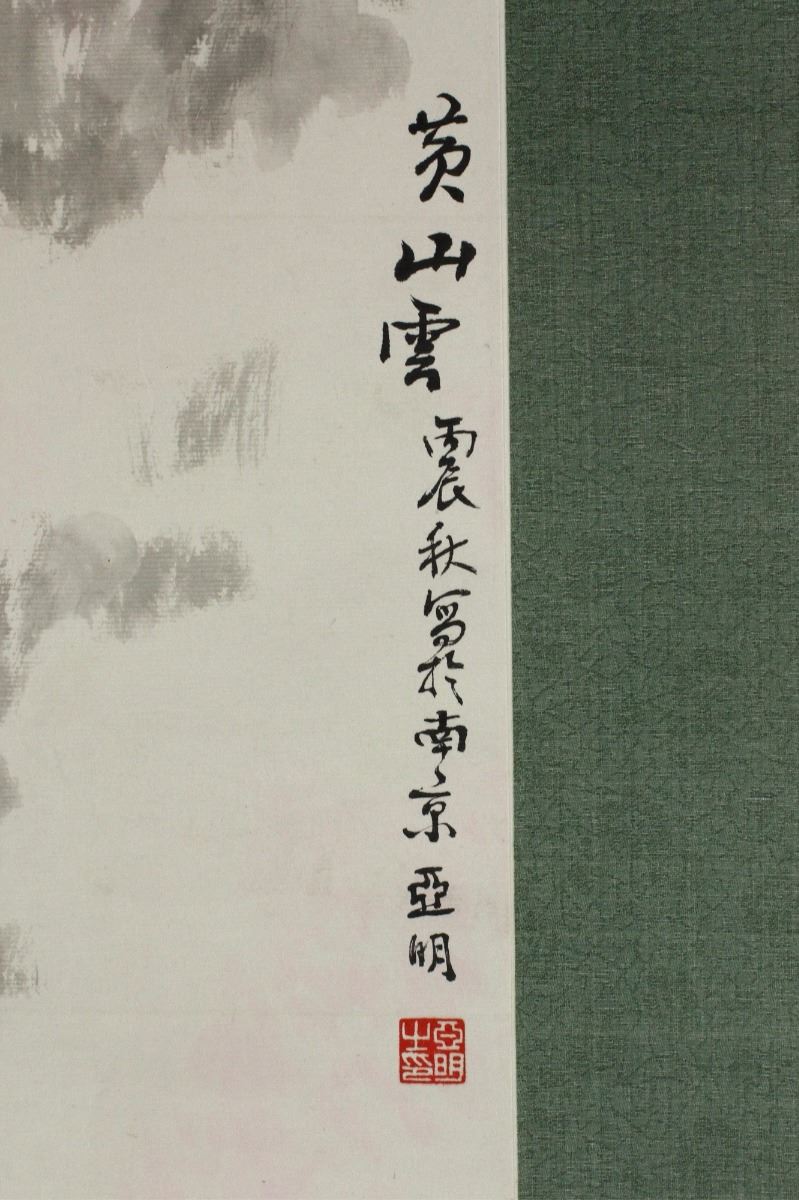 黄山雲丙辰秋寫於南京亞明
亞明之印